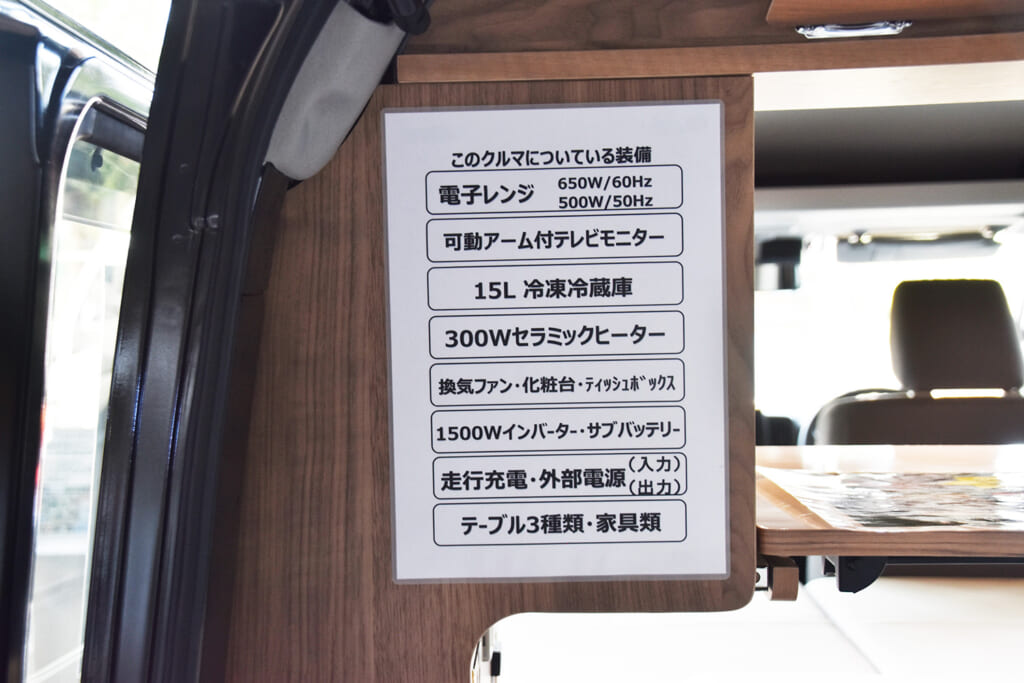 このクルマについている装備
電子レンジ 650W/60Hz
500W/50Hz
可動アーム付テレビモニター
15L 冷凍冷蔵庫
300Wセラミックヒーター
換気ファン・化粧台・ティッシュボックス
1500Wインバーター・サブバッテリー
走行充電・外部電源(入力)
(出力)
テーブル3種類・家具類